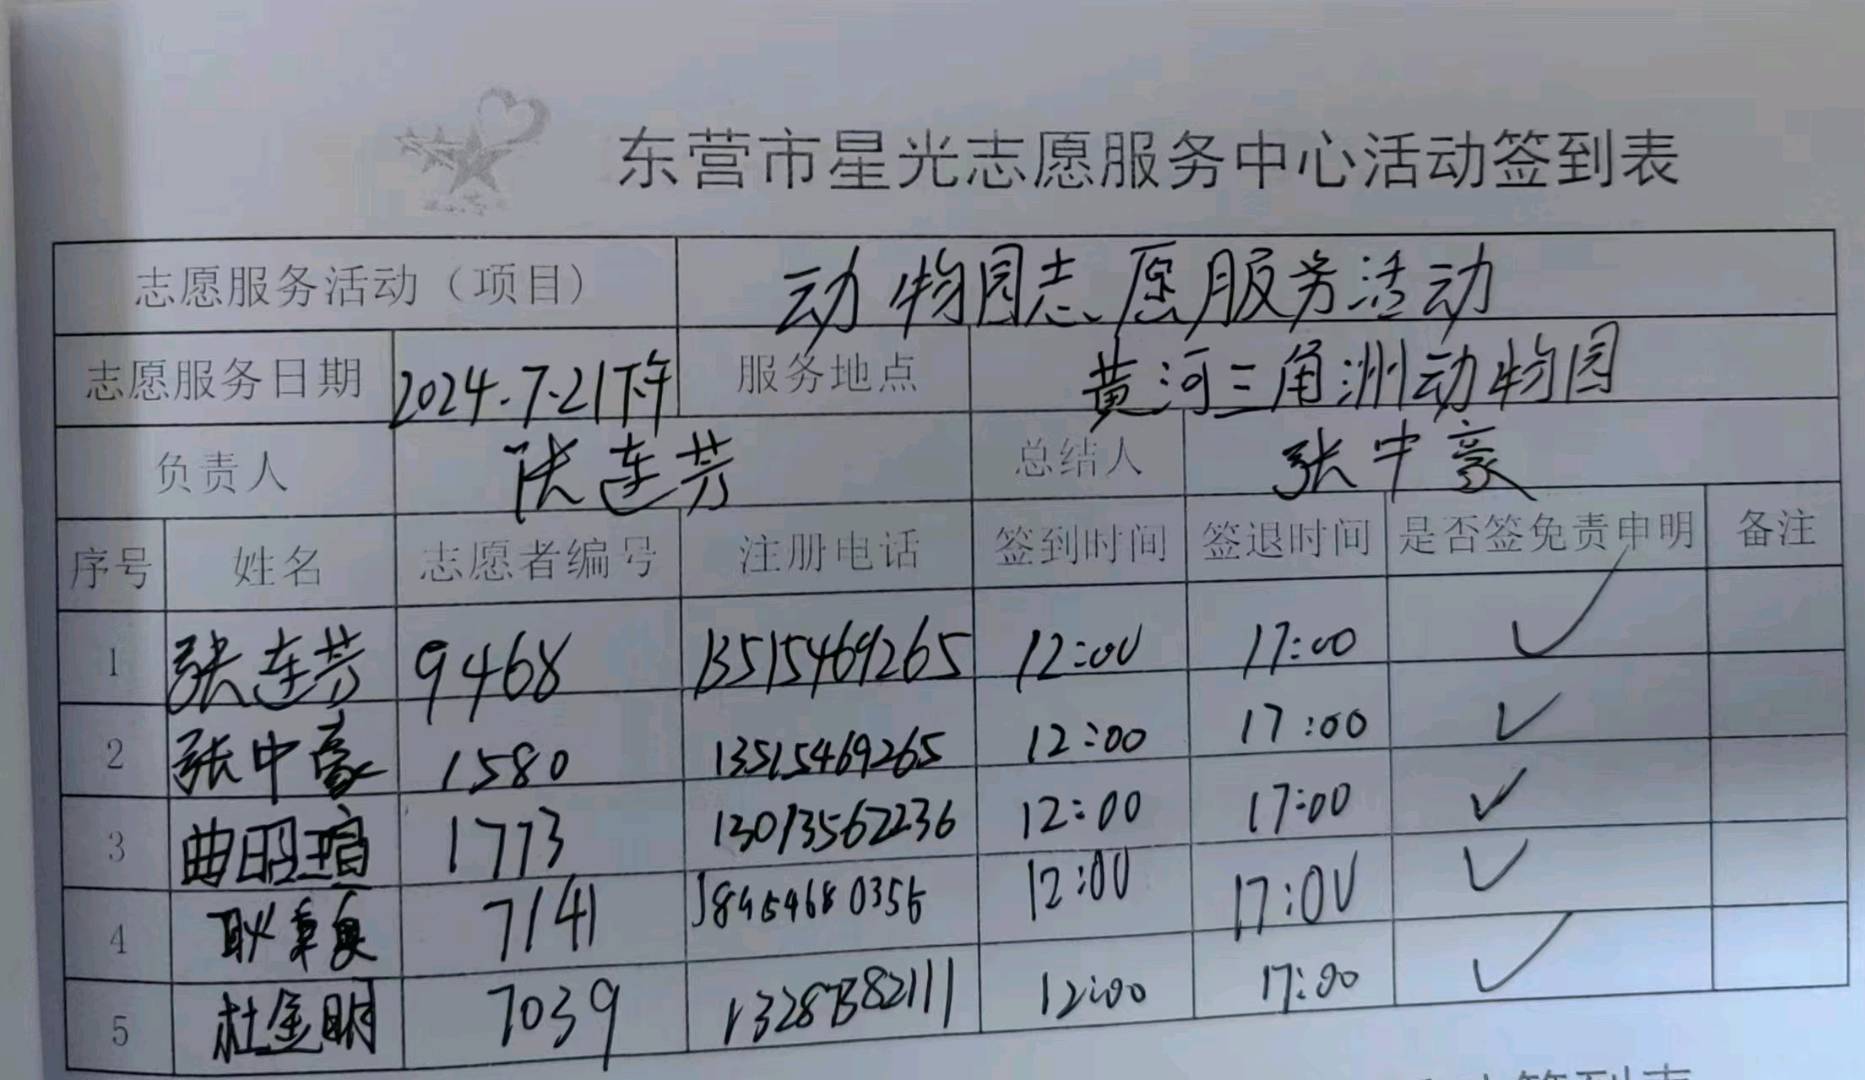 东营市星光志愿服务中心活动签到表
志愿服务活动（项目） 动物园志愿服务活动
志愿服务日期 2024.7.21下午 服务地点 黄河三角洲动物园
负责人 张连芳 总结人 张中豪
序号 姓名 志愿者编号 注册电话 签到时间 签退时间 是否签免责申明 备注
1 张连芳 9468 13515469265 12:00 17:00 ✓
2 张中豪 1580 13515469265 12:00 17:00 ✓
3 曲昭瑄 1773 13013562236 12:00 17:00 ✓
4 耿 7141 12:00 17:00 ✓
5 杜金明 7039 12:00 17:00 ✓